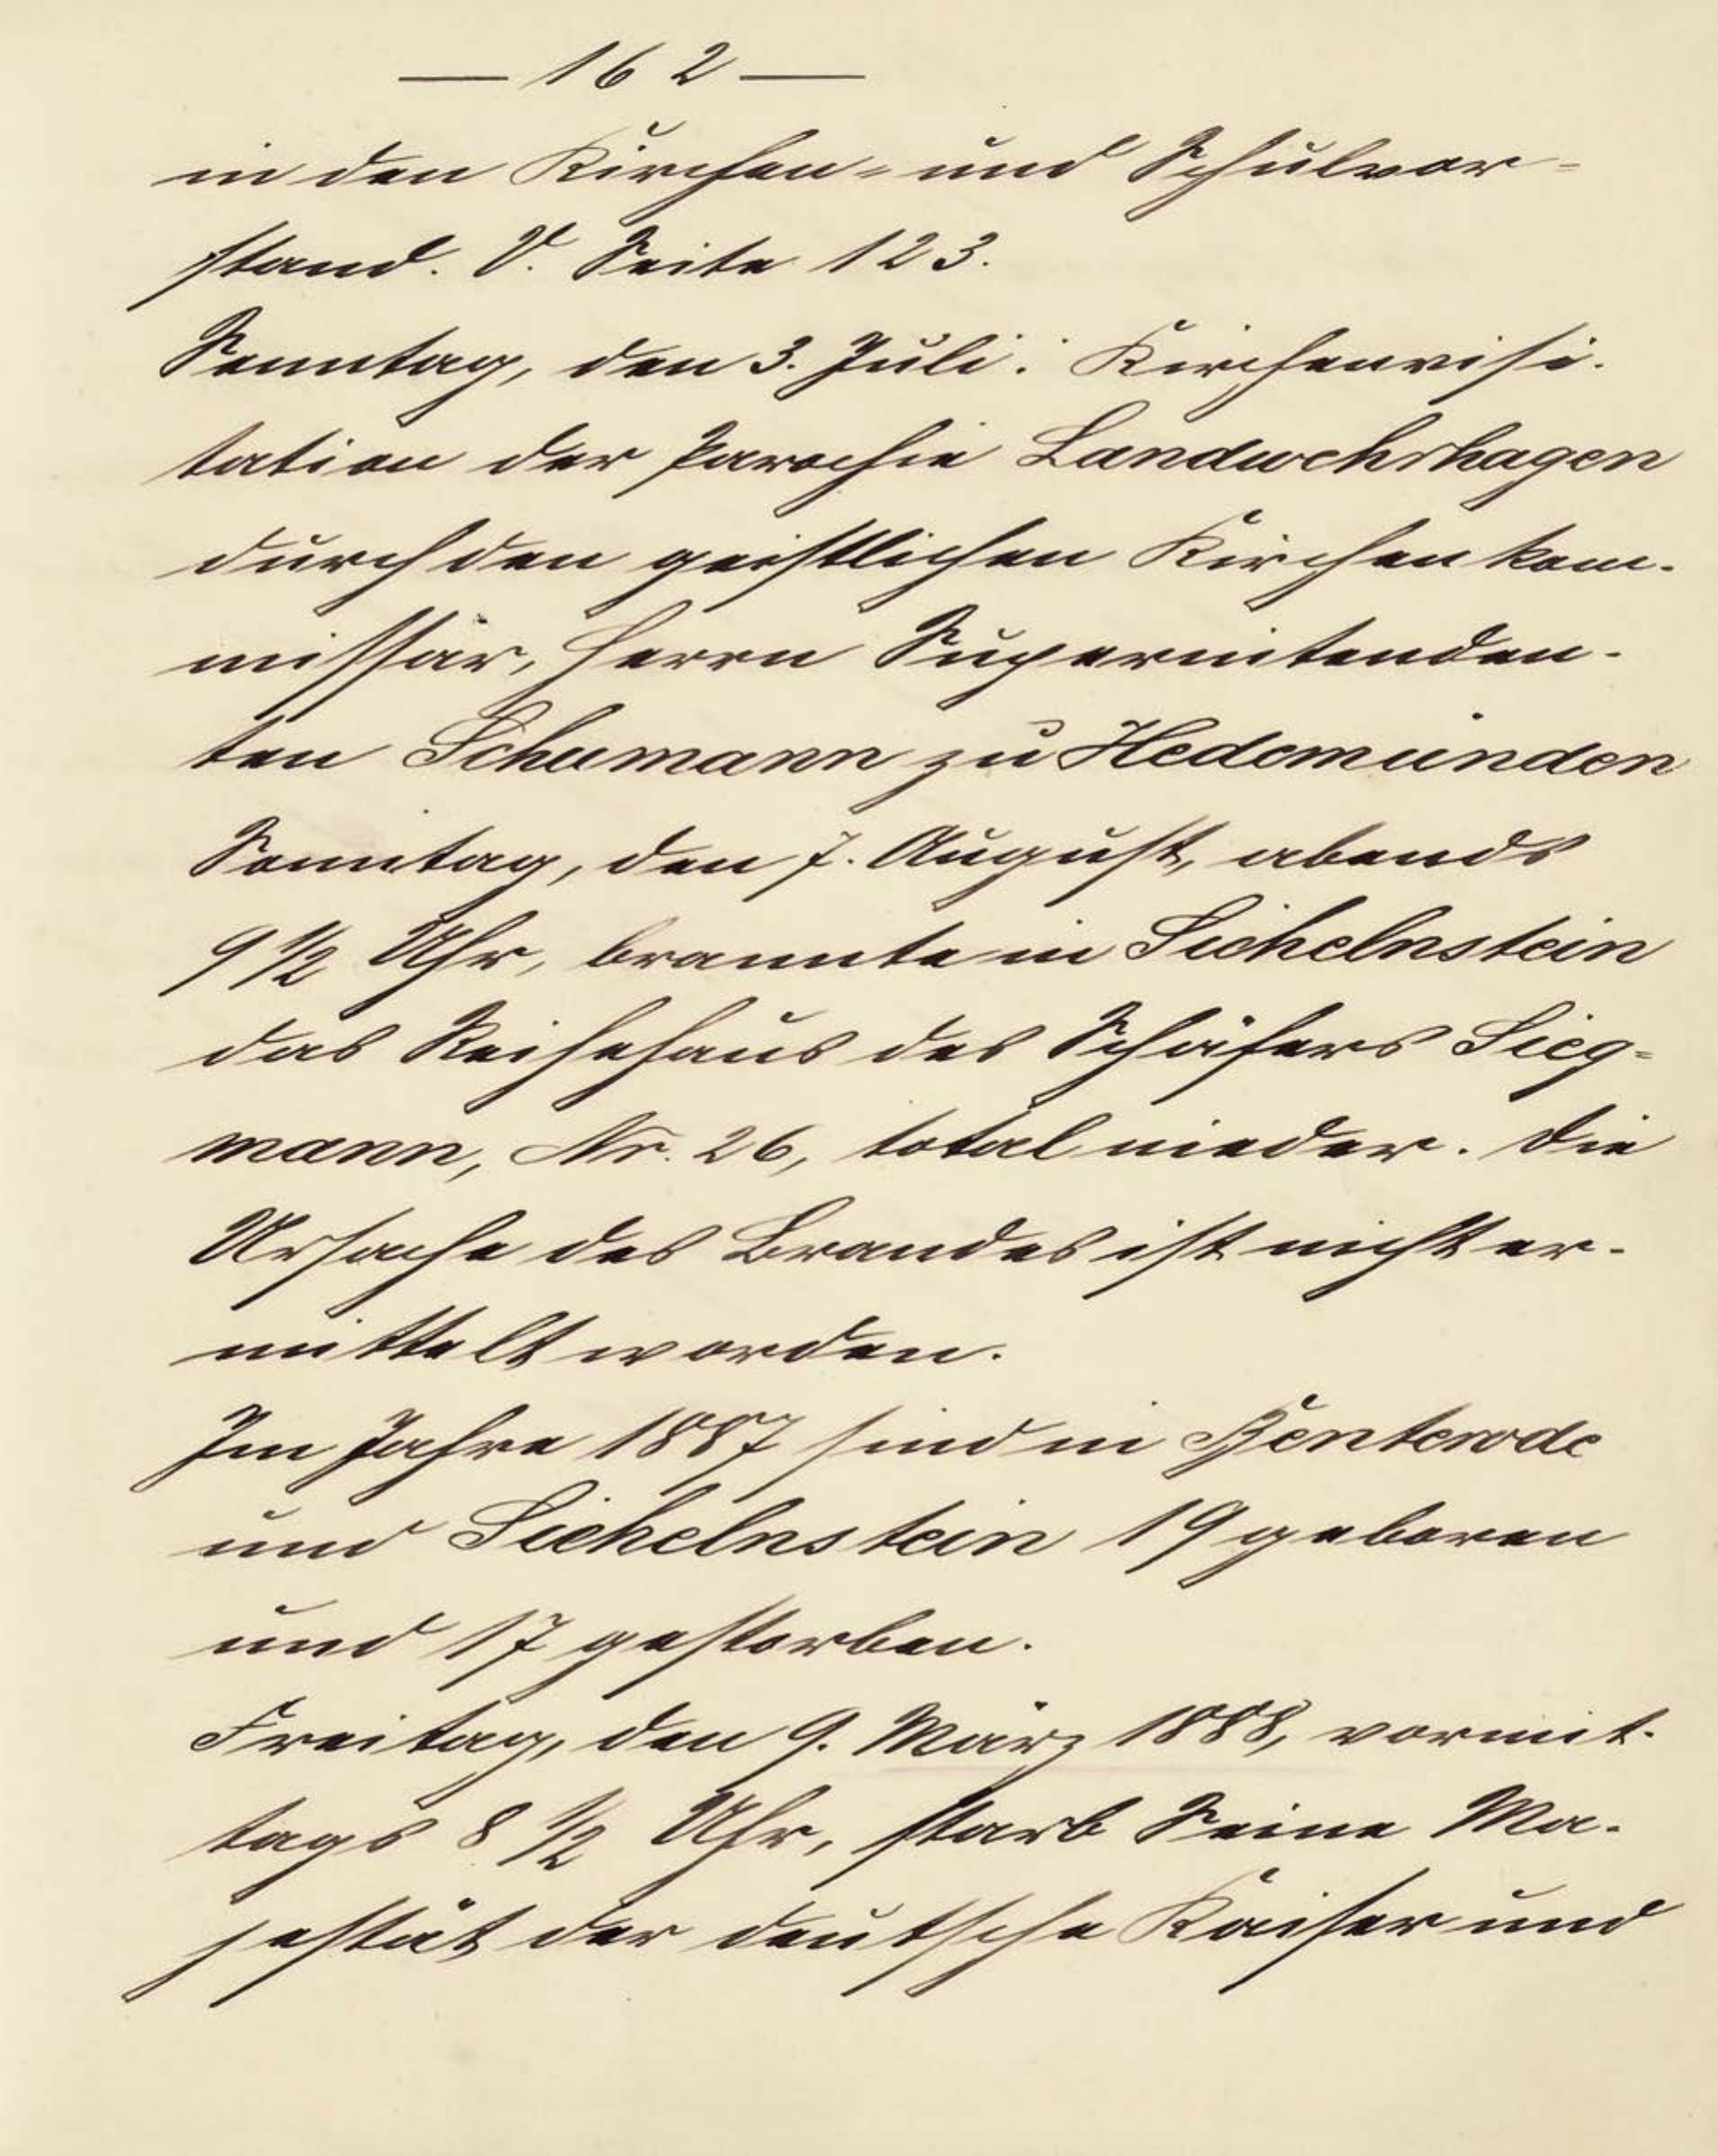 — 162 —
in den Kirchen- und Schulvor-
stand. V. Seite 123.
Sonntag, den 3. Juli: Kirchenvisi-
tation der Parochie Landwehrhagen
durch den geistlichen Kirchenkom-
missär, Herrn Superintenden-
ten Schumann zu Hedemünden
Sonntag, den 7. August, abends
9 1/2 Uhr, brannte in Sichelnstein
das Reihehaus des Schäfers Sieg-
mann, Nr. 26, total nieder. Die
Ursache des Brandes ist nicht er-
mittelt worden.
Im Jahre 1887 sind in Benterode
und Sichelnstein 19 geboren
und 17 gestorben.
Freitag, den 9. März 1888, vormit-
tags 8 1/2 Uhr, starb Seine Ma-
jestät der deutsche Kaiser und